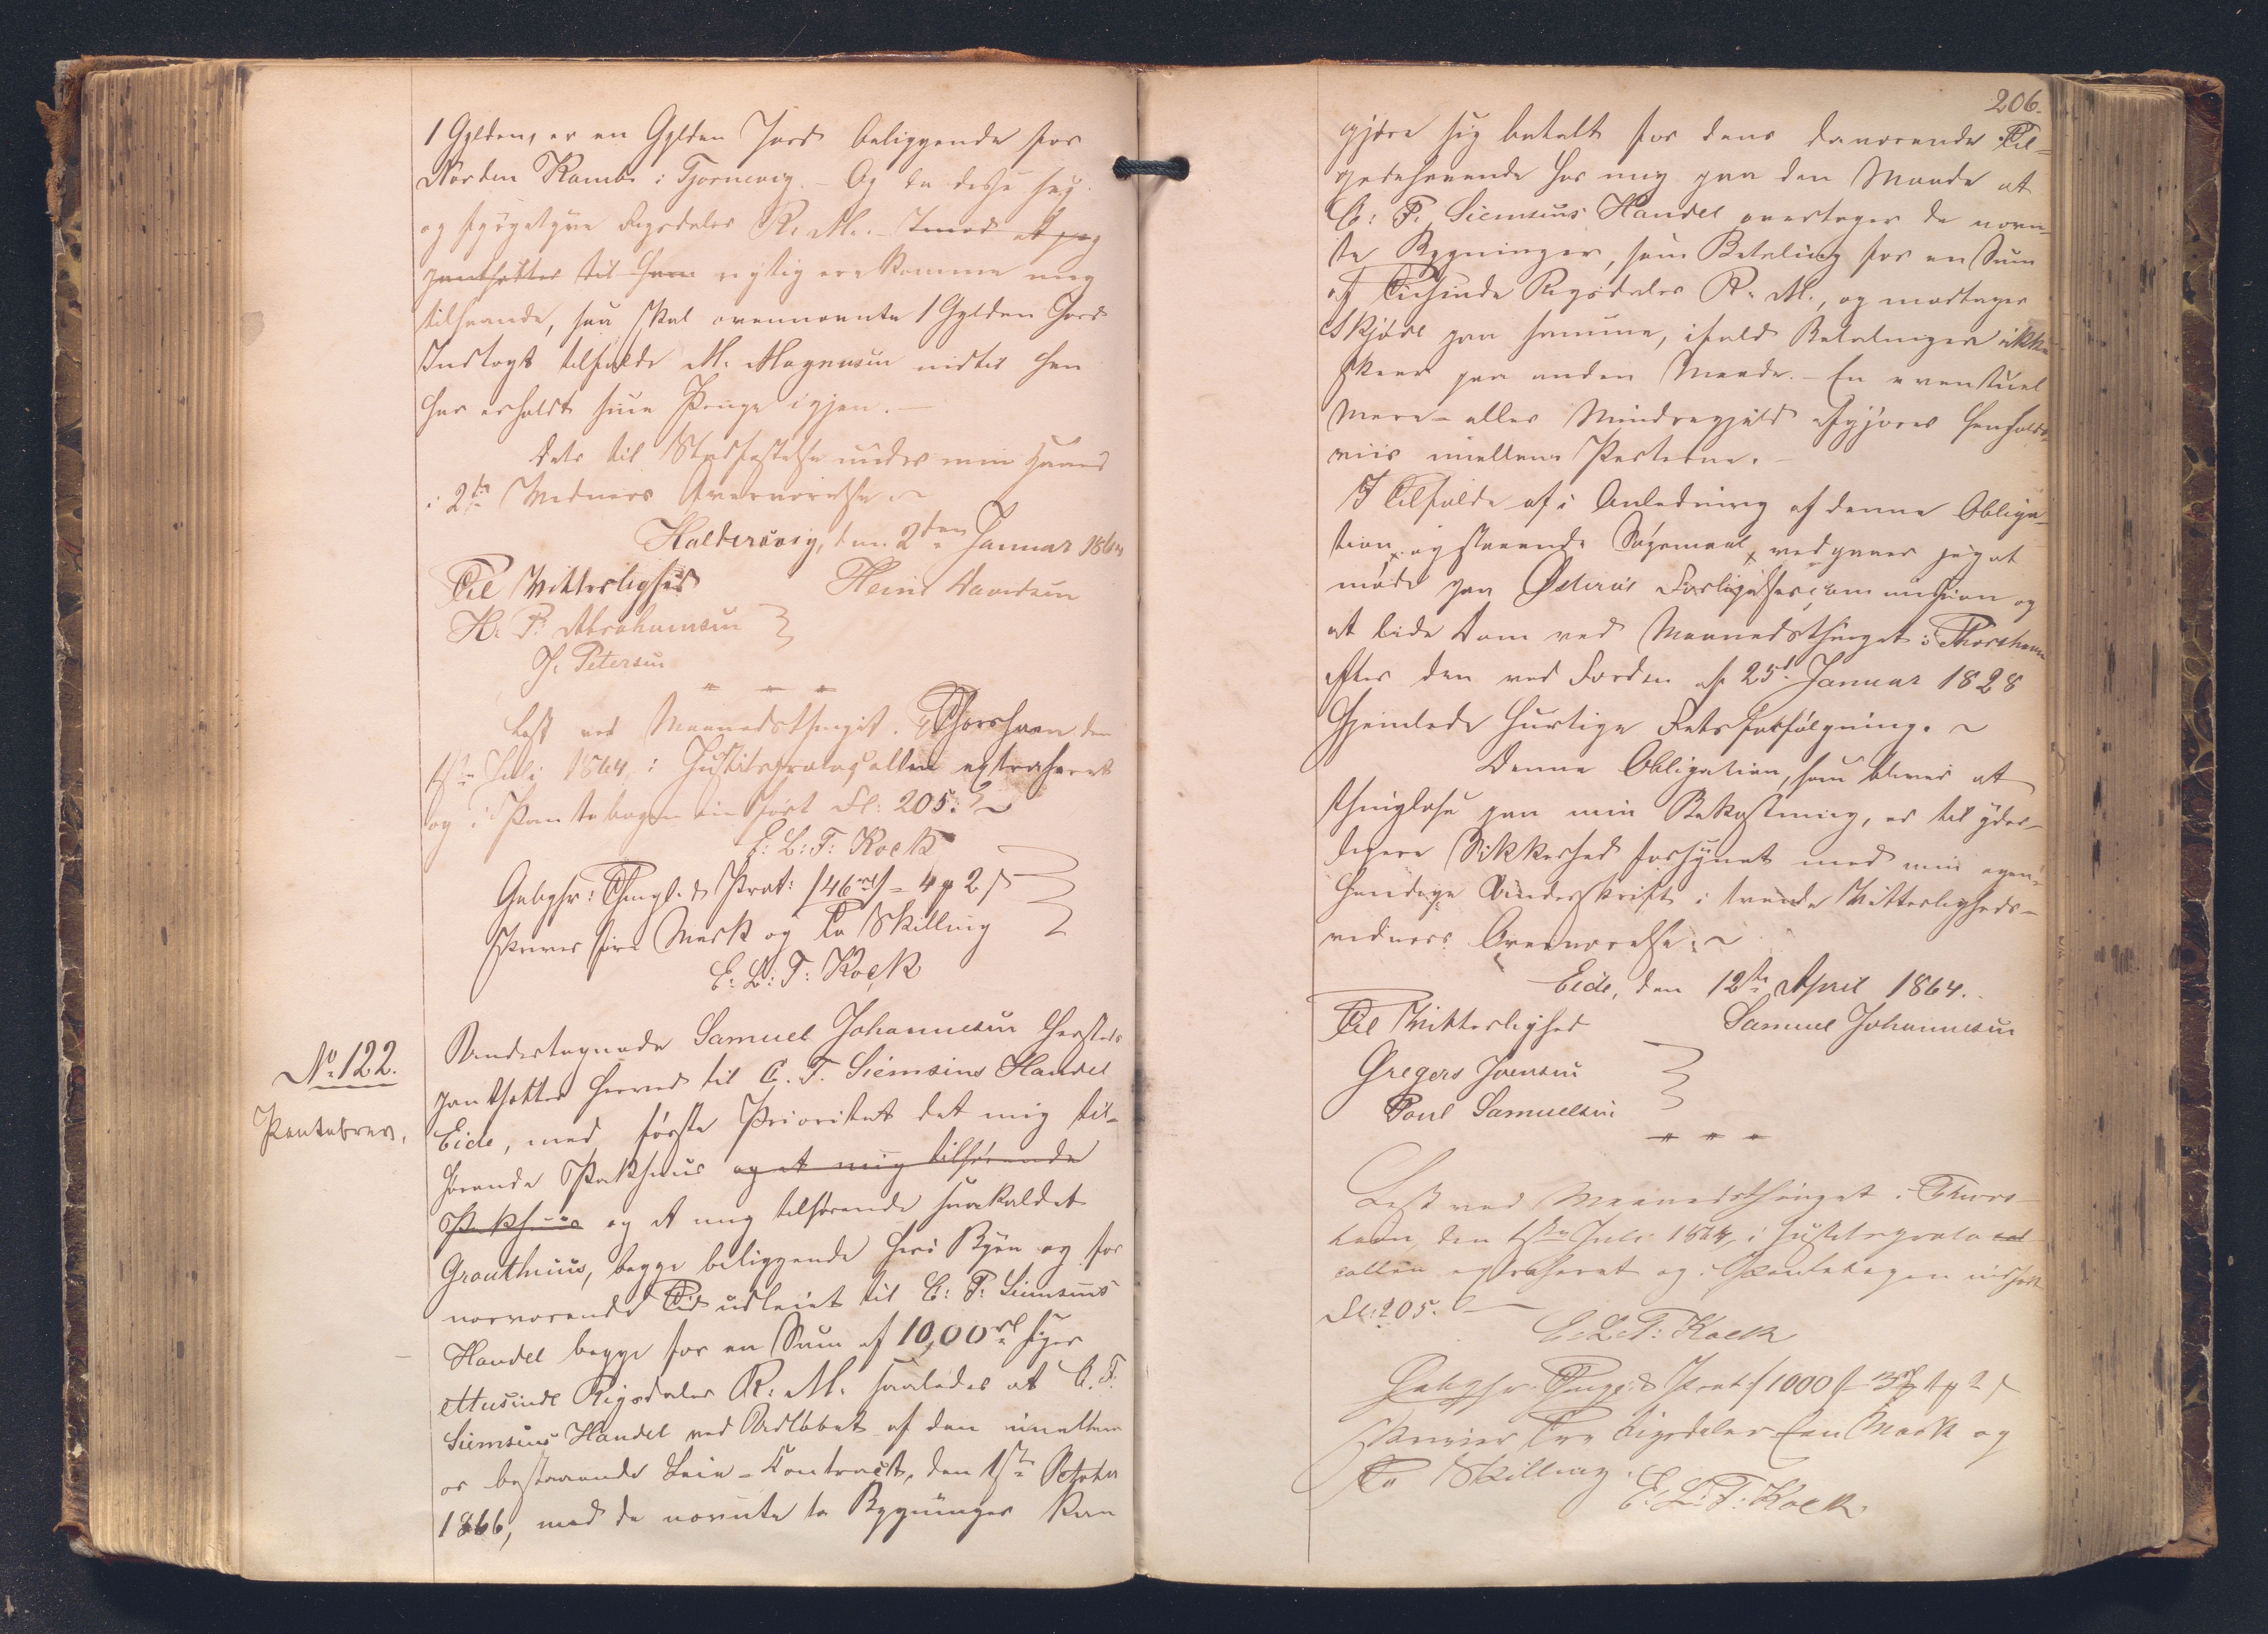 1 Gylden, er en Gylden Jord beliggende for
Norden Kambe i Tjørnevig. – Og da disse sex
og fyrgetyve Rigsdaler R. M. – Imod at jeg
pantsætter til ham rigtig ere komme mig
tilhaande, saa skal ovennævnte 1 Gylden Jord
Indtægt tilfalde M. Magnusen indtil han
har erholdt sine Penge igjen. –
Dets til Stadfæstelse under min Haand
i 2de Vidners Overværelse. ~
Haldersvig, den 2den Januar 1864
Til Vitterlighed Heine Davidsen
H. P. Abrahamsen
J. Petersen
Læst ved Maanedsthinget i Thorshavn den
1ste Juli 1864, i Justitsprotocollen extraheret
og i Pantebogen indført Fol: 205. ~
E: L: T: Kock
Gebyhr: Thingl. & Prot: /46 rd/ = 4 # 2 s
skriver fire Mark og to Skilling
E: L: T: Kock
No 122.
Pantebrev.
Undertegnede Samuel Johannesen
pantsætter herved til C. F. Siemsens Handel
Eide, med første Prioritet det mig til-
hørende Pakhuus og et mig tilhørende
Pakhuus og et mig tilhørende saakaldet
Grouthuus, begge beliggende her i Byen og for
nærværende Tid udleiet til C: F: Siemsens
Handel begge for en Sum af 10,00 rd siger
ettusinde Rigsdaler R. M. saaledes at C. F.
Siemsens Handel ved Udløbet af den imellem
os bestaaende Leie-Contract, den 1ste October
1866, med de nævnte to Bygninger kan
206.
gjøre sig betalt for dens daværende Til-
godehavende hos mig paa den Maade at
C: F. Siemsens Handel overtager de nævn-
te Bygninger, som Betaling for en Sum
af Titusinde Rigsdaler R. M., og modtager
Skjøde paa samme, ifald Betalingen ikke
skeer paa anden Maade. – En eventuel
Mere- eller Mindregjæld afgjøres henholds-
viis imellem Parterne. –
I Tilfælde af i Anledning af denne Obliga-
tion opstaaende Søgsmaal, vedgaaer jeg at
møde paa Østerøs Forligelsescommission og
at lide Dom ved Maanedsthinget i Thorshavn
efter den ved Fordn. af 25d Januar 1828
hjemlede hurtige Retsforfølgning. ~
Denne Obligation, som bliver at
thinglæse paa min Bekostning, er til yder-
ligere Sikkerhed forsynet med min egen-
hændige Underskrift i tvende Vitterligheds-
vidners Overværelse. ~
Eide, den 12te April 1864.
Til Vitterlighed Samuel Johannesen
Gregers Joensen
Poul Samuelsen
Læst ved Maanedsthinget i Thors-
havn, den 1ste Juli 1864, i Justitsproto
collen extraheret og i Pantebogen indført
Fol: 205.
E: L: T: Kock
Gebyhr. Thingl: & Prot: /1000/ 3 rd 1 # 2 s
skriver Tre Rigsdaler Een Mark og
to Skilling.
E: L: T: Kock.